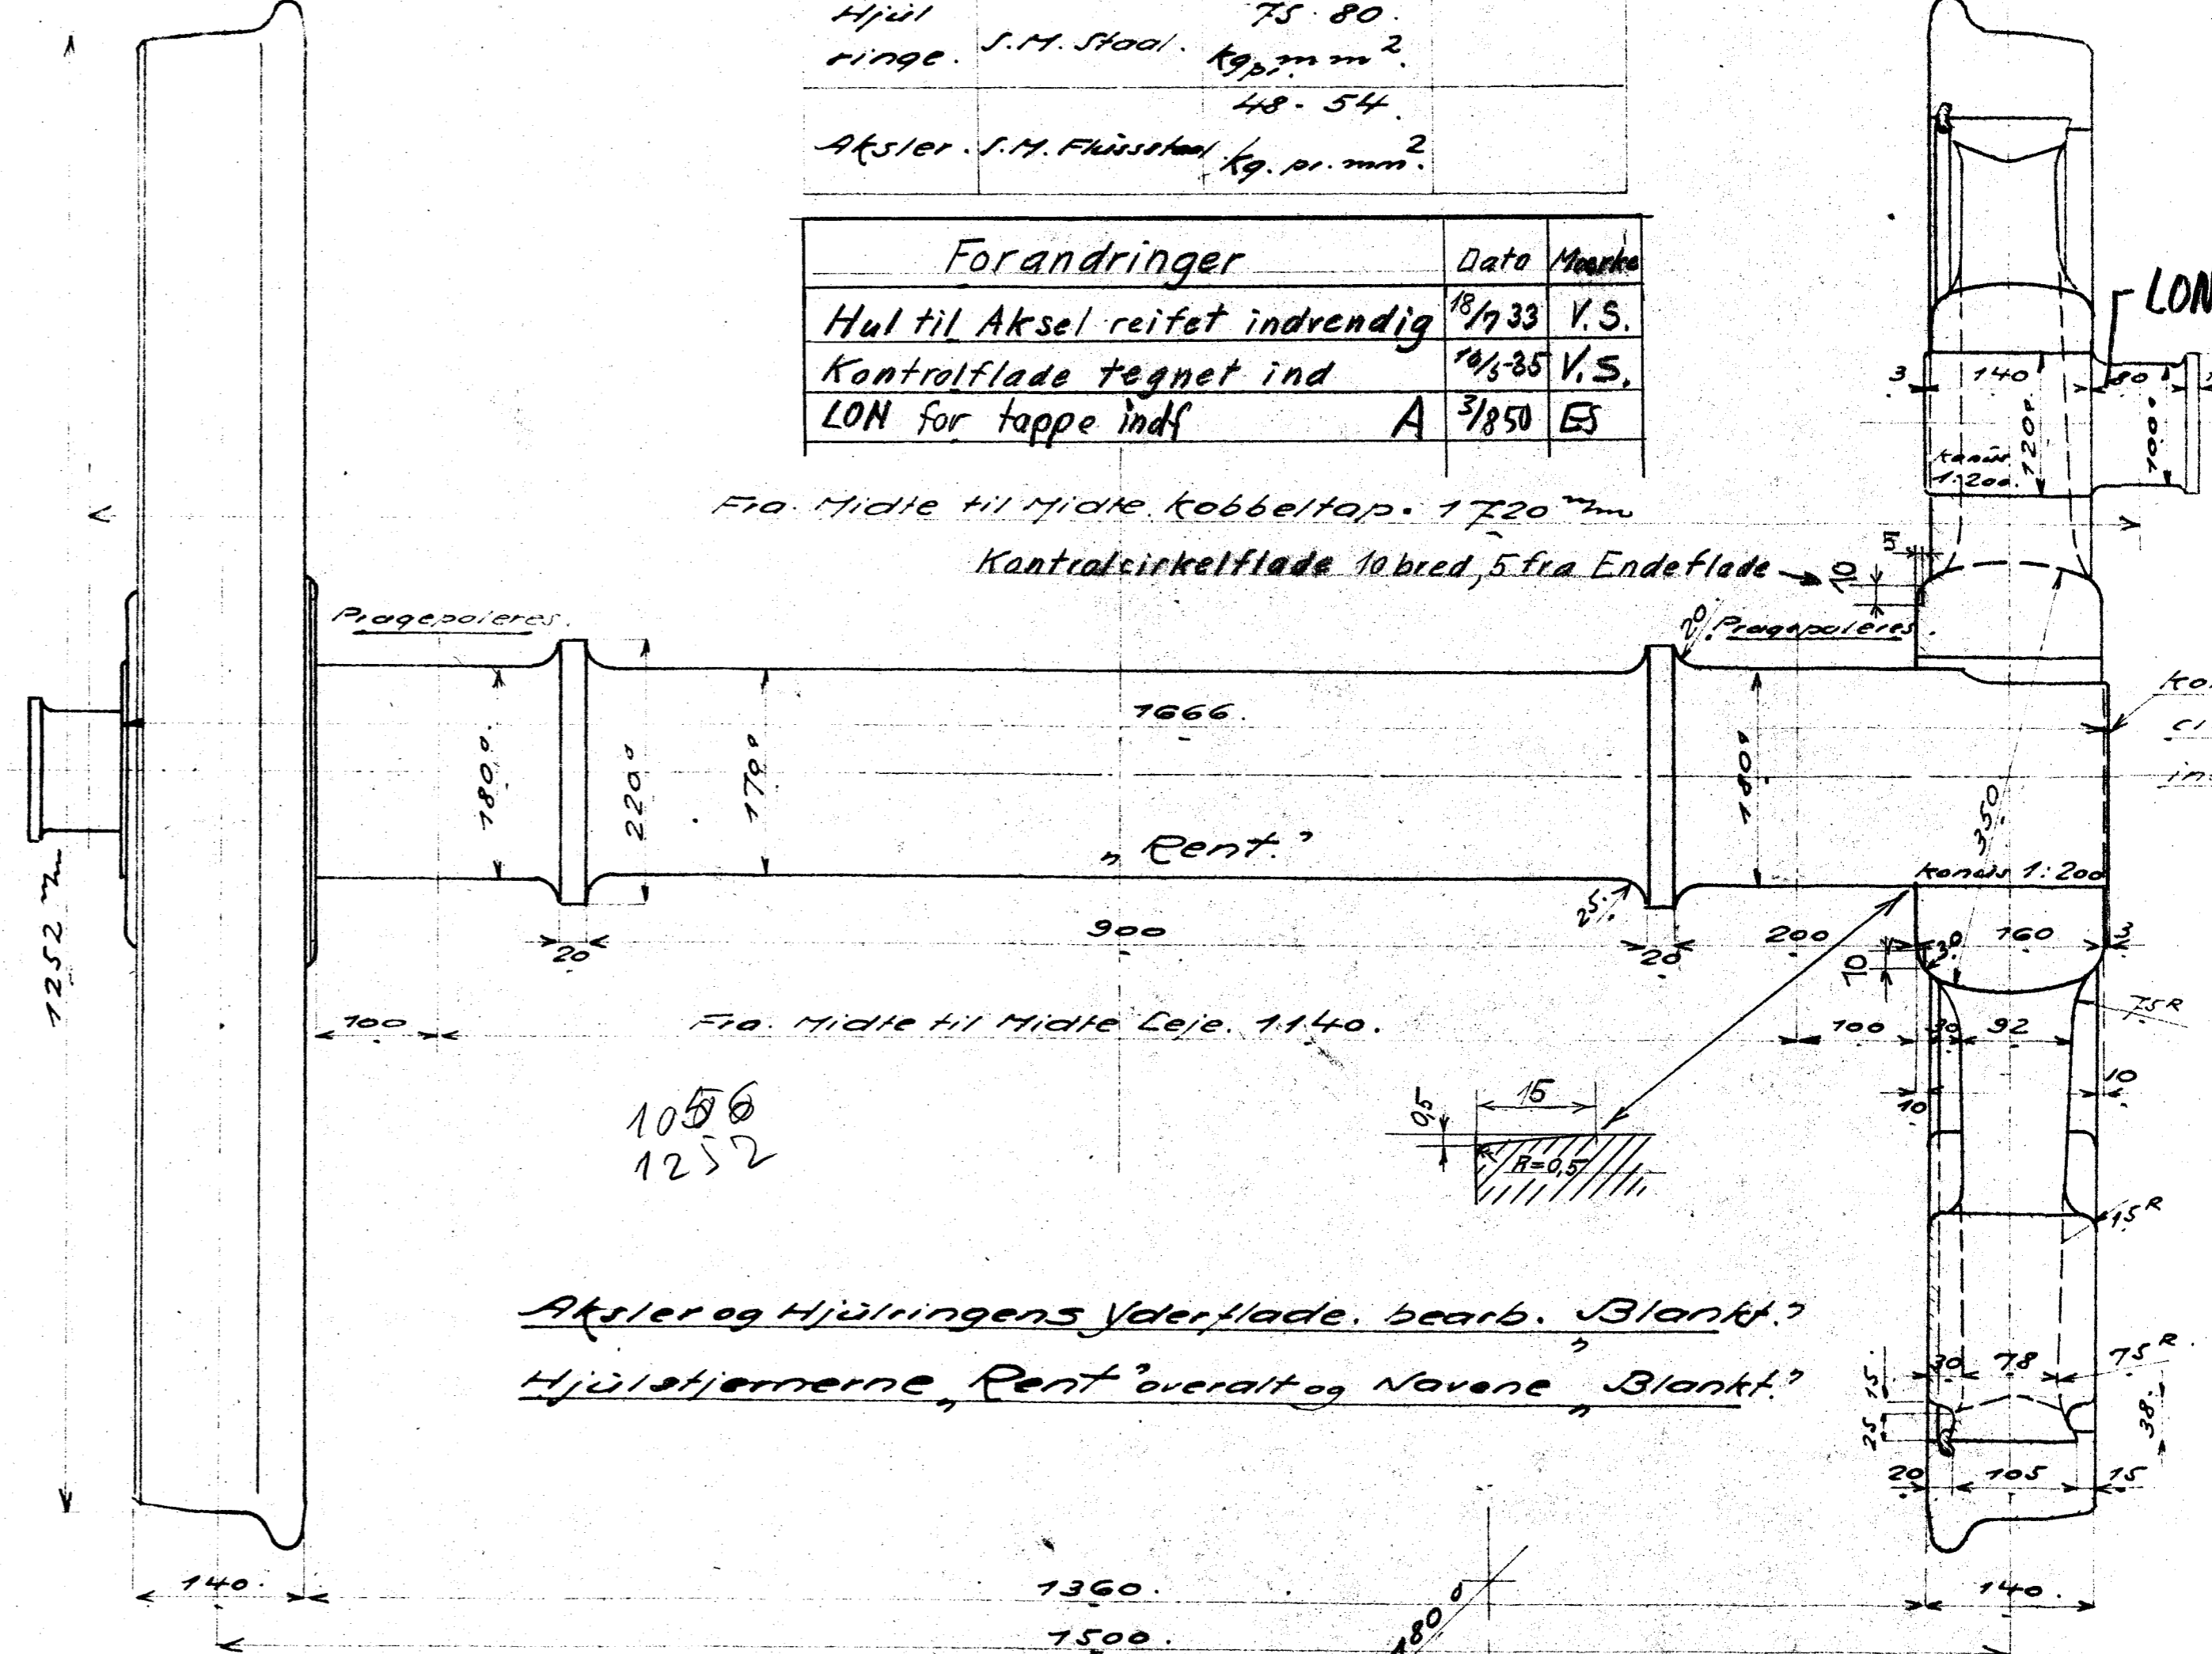 Hjül 75-80.
ringe. S.M. Staal. kg pr. mm².
48-54.
Aksler. S.M. Flüsstaal kg. pr. mm².
Forandringer Dato Mærke
Hul til Aksel reifet indvendig 18/7 33 V.S.
Kontrolflade tegnet ind 35 V.S.
LON for tappe indf A 3/8 50 ES
LON
3 140 80
120° 100°
Konüs
1:200.
Fra Midte til Midte Kobbeltap. 1720 m/m
Kontrolcirkelflade 10 bred, 5 fra Endeflade
5 10
Prægepoleres.
20 Prægepoleres.
1666.
180° 220° 170° 180°
350
„Rent.”
Konüs 1:200
1252 m/m
20 900 25 20 200 10 30 160 3
75R
100 Fra Midte til Midte Leje. 1140. 100 30 92
10 10
1056
1252
0,5 15
R=0,5
15R
Aksler og Hjülringens Yderflade. bearb. „Blankt.”
Hjülstjernerne „Rent” overalt og Navene „Blankt.”
15. 30 78 75R.
25 38.
20 105 15
140. 1360. 140.
180°
1500.